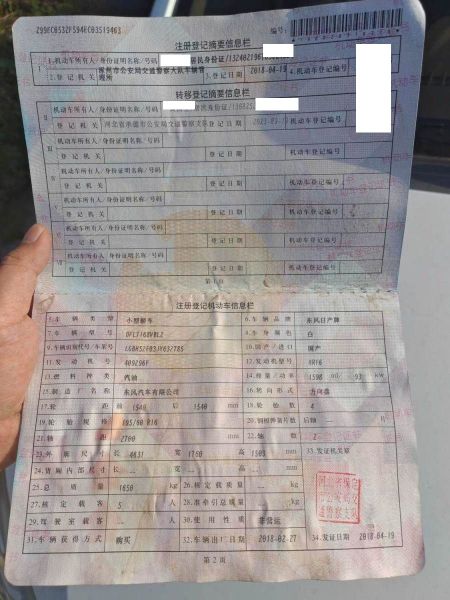 编号:
注册登记摘要信息栏
Ⅰ 1.机动车所有人/身份证明名称/号码 居民身份证
2.登记机关 涿州市公安局交通警察大队车辆管理所 3.登记日期 2018-04-19 4.机动车登记编号
转移登记摘要信息栏
Ⅱ 机动车所有人/身份证明名称/号码
登记机关 河北省承德市公安局交通警察支队 登记日期 机动车登记编号
Ⅲ 机动车所有人/身份证明名称/号码
登记机关 登记日期 机动车登记编号
机动车所有人/身份证明名称/号码
登记机关 登记日期 机动车登记编号
机动车所有人/身份证明名称/号码
登记机关 登记日期 机动车登记编号
机动车所有人/身份证明名称/号码
登记机关 登记日期 机动车登记编号
Ⅶ 机动车所有人/身份证明名称/号码
登记机关 登记日期 机动车登记编号
第1页
注册登记机动车信息栏
5.车辆类型 小型轿车 6.车辆品牌 东风日产牌
7.车辆型号 8.车身颜色 白
9.车辆识别代号/车架号 10.国产/进口 国产
11.发动机号 409296F 12.发动机型号 HR16
13.燃料种类 汽油 14.排量/功率 1598 ml/ 93 kw
15.制造厂名称 东风汽车有限公司 16.转向形式 方向盘
17.轮距 前 1540 后 1540 mm 18.轮胎数 4
19.轮胎规格 195/60 R16 20.钢板弹簧片数 后轴 片
21.轴距 2700 mm 22.轴数 2
23.外廓尺寸 长 4631 宽 1760 高 1503 mm 33.发证机关章
24.货厢内部尺寸 长 宽 高 mm
25.总质量 1650 kg 26.核定载质量 kg
27.核定载客 5 人 28.准牵引总质量 kg
29.驾驶室载客 人 30.使用性质 非营运
河北省保定市公安局交通警察支队
31.车辆获得方式 购买 32.车辆出厂日期 2018-02-27 34.发证日期 2018-04-19
第2页